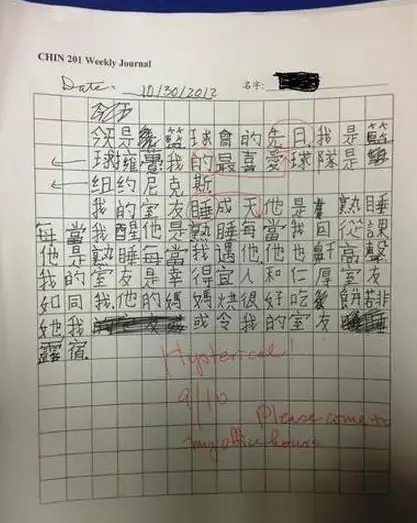 CHIN 201 Weekly Journal
Date: 10/30/2012 名字:
今天是 籃球會的先日我是籃
球擁躉我的最喜愛球隊是
纽約尼克斯
我的室友睡成天他是 熟睡
每當我醒他是熟睡每當我回從課
他是熟睡每當我遇他他也鼾高聲
我的室友是幸得宜人和仁厚室友
如同我他的媽媽烘很好吃 餅若非
她我 或令我的室友
露宿
Hysterical
9/10
Please come to
my office hours